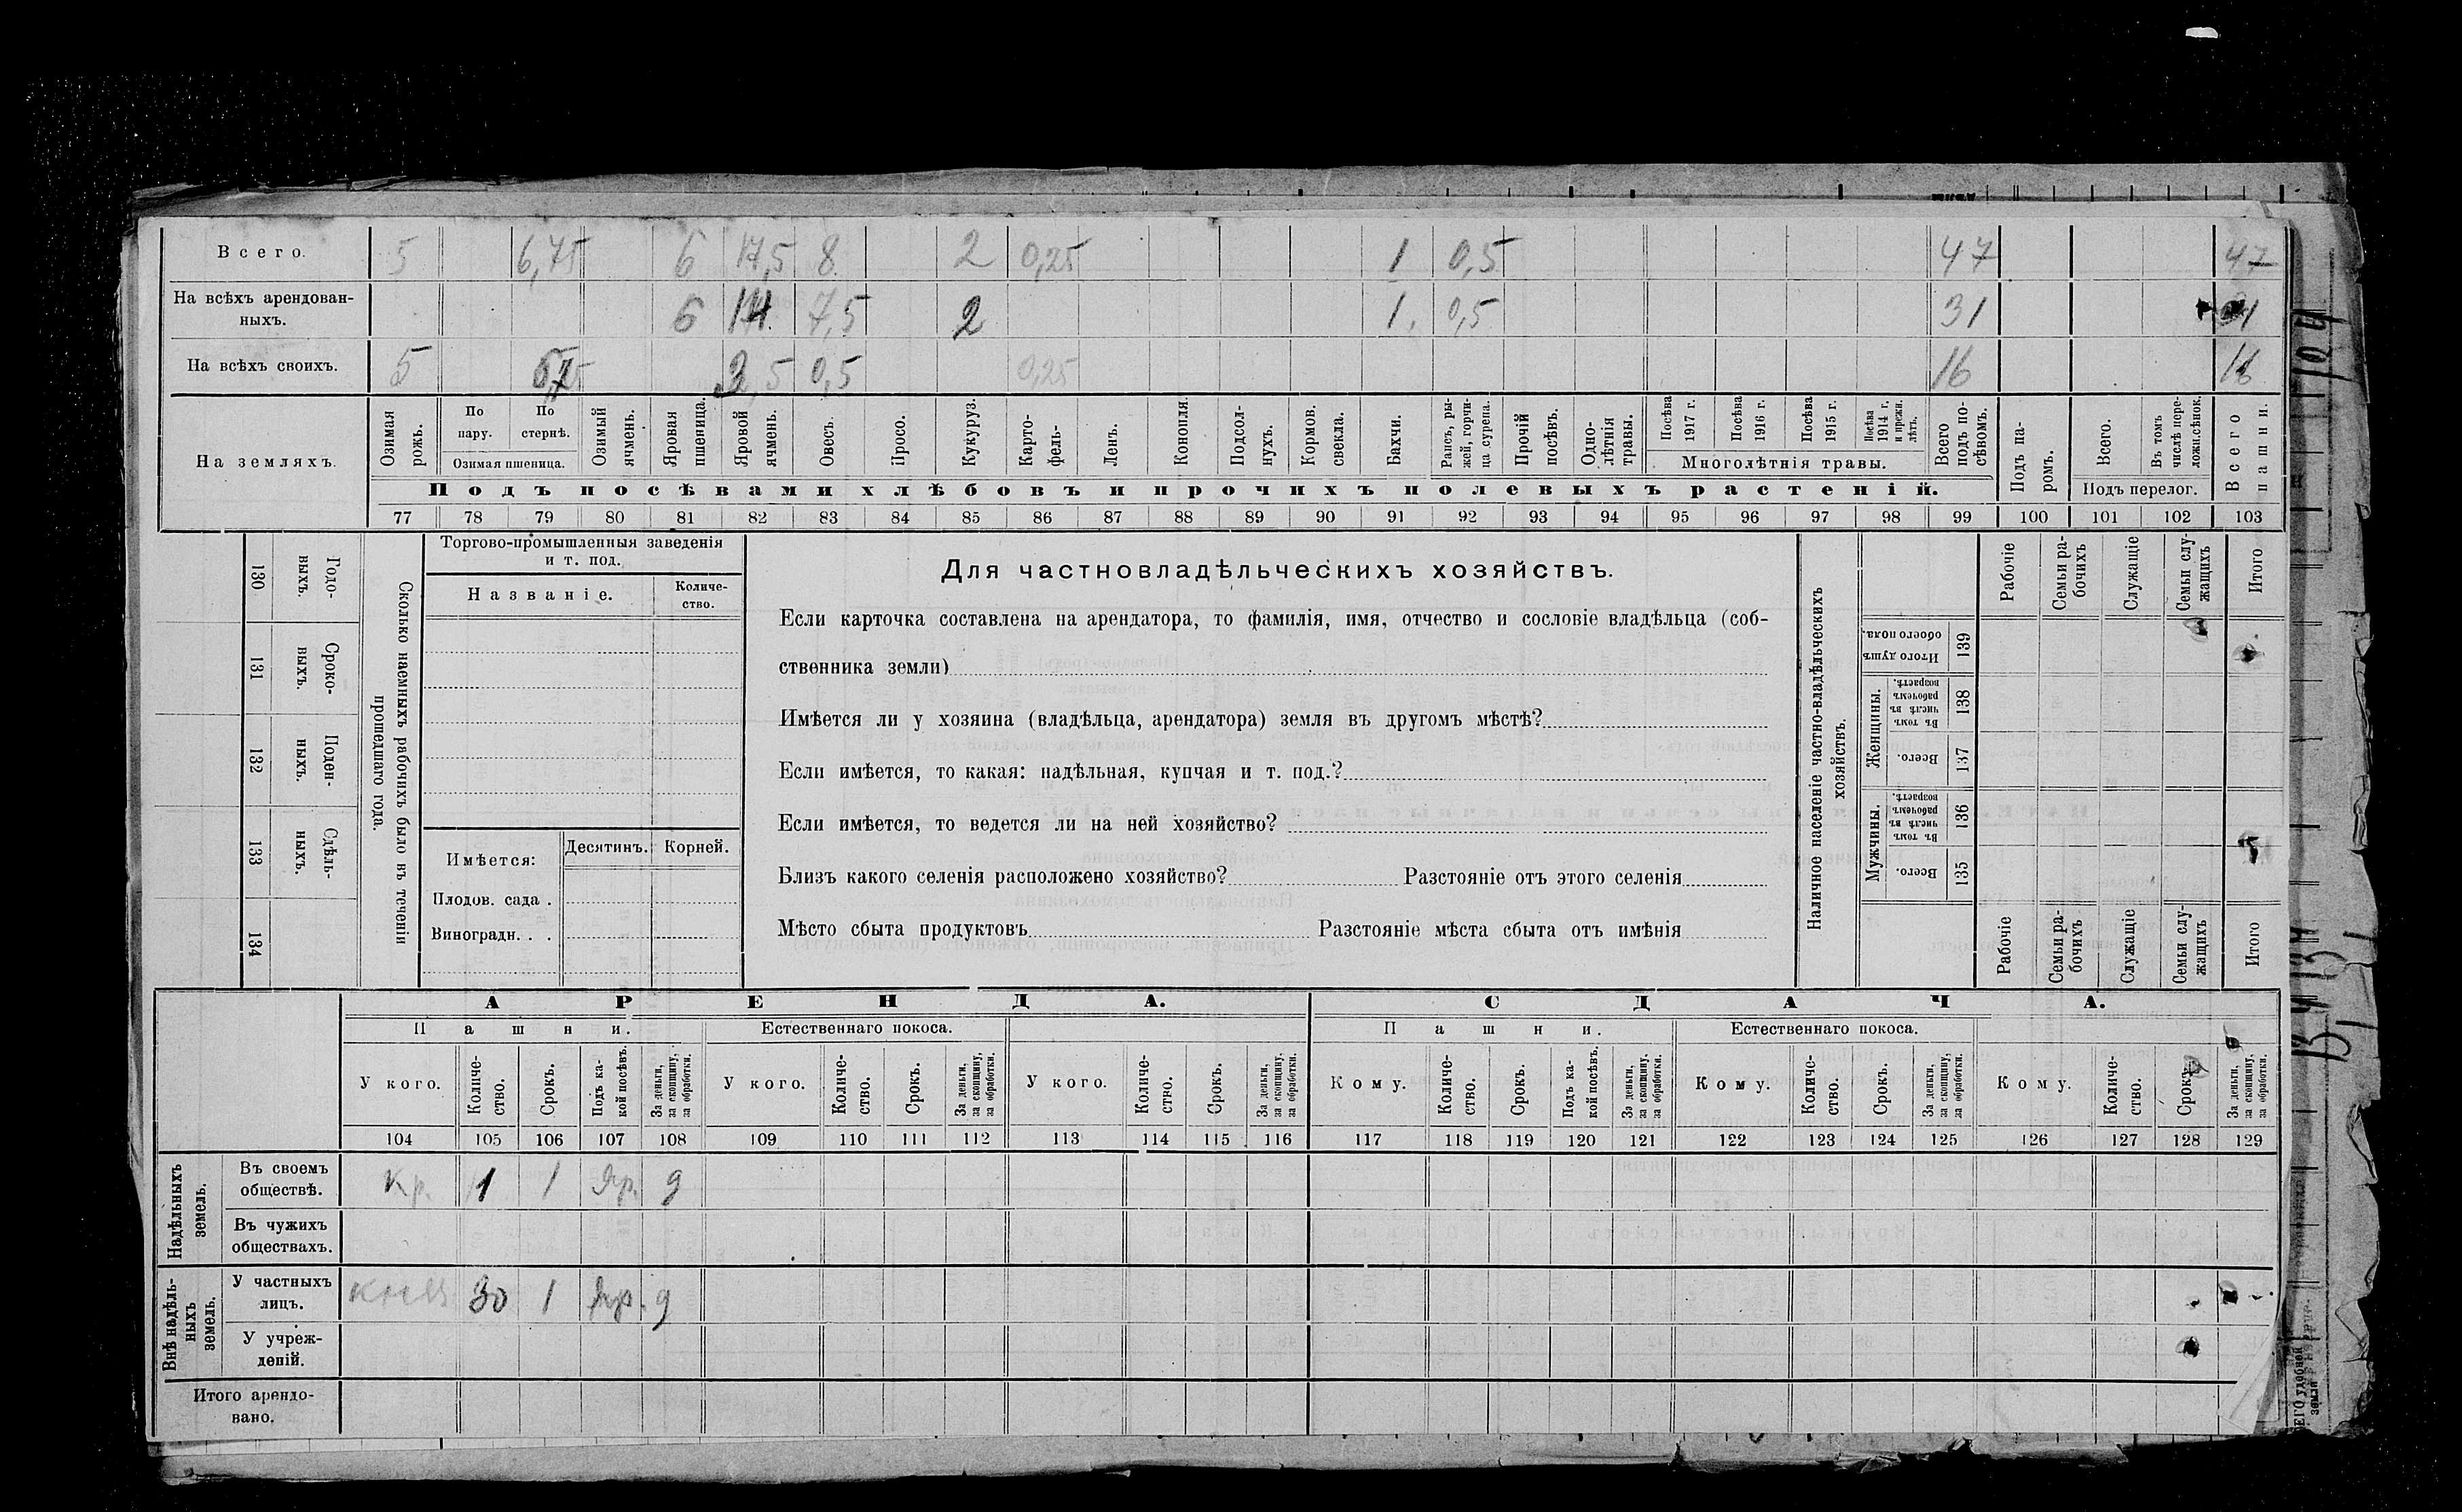 Всего. 5 6,75 6 17,5 8 2 0,25 1 0,5 47 47
На всѣхъ арендован-
ныхъ. 6 14 7,5 2 1 0,5 31 31
На всѣхъ своихъ. 5 0,5 0,25 16 16
На земляхъ.
Озимая рожь.
По пару.
По стернѣ.
Озимая пшеница.
Озимый ячмень.
Яровая пшеница.
Яровой ячмень.
Овесъ.
Просо.
Кукуруз.
Карто-
фель-
Ленъ.
Конопля.
Подсол-
нухъ.
Кормов.
свекла.
Бахчи.
Рапсъ, ры-
жей, горчи-
ца сурепа.
Прочій
посѣвъ.
Одно-
лѣтнія
травы.
Посѣва
1917 г.
Посѣва
1916 г.
Посѣва
1915 г.
Посѣва
1914 г.
и прежн.
лѣтъ.
Многолѣтнія травы.
Всего
подъ по-
сѣвомъ.
Подъ па-
ромъ.
Всего.
Въ томъ
числѣ пере-
ложн.сѣнок.
Подъ перелог.
Всего
пашни.
Подъ посѣвами хлѣбовъ и прочихъ полевыхъ растеній.
77 78 79 80 81 82 83 84 85 86 87 88 89 90 91 92 93 94 95 96 97 98 99 100 101 102 103
130 Годо-
выхъ.
131 Сроко-
выхъ.
132 Поден-
ныхъ.
133 Сдѣль-
ныхъ.
134
Сколько наемныхъ рабочихъ было въ теченіи
прошедшаго года.
Торгово-промышленныя заведенія
и т. под.
Названіе.
Количе-
ство.
Имѣется:
Десятинъ. Корней.
Плодов. сада .
Виноградн. . .
Для частновладѣльческихъ хозяйствъ.
Если карточка составлена на арендатора, то фамилія, имя, отчество и сословіе владѣльца (соб-
ственника земли)
Имѣется ли у хозяина (владѣльца, арендатора) земля въ другомъ мѣстѣ?
Если имѣется, то какая: надѣльная, купчая и т. под.?
Если имѣется, то ведется ли на ней хозяйство?
Близъ какого селенія расположено хозяйство? Разстояніе отъ этого селенія
Мѣсто сбыта продуктовъ Разстояніе мѣста сбыта отъ имѣнія
Наличное населеніе частно-владѣльческихъ
хозяйствъ.
Рабочіе
Семьи ра-
бочихъ
Служащіе
Семьи слу-
жащихъ
Итого
Итого душъ
обоего пола.
139
Женщины.
Въ томъ
числѣ въ
рабочемъ
возрастѣ.
138
Всего.
137
Мужчины.
Въ томъ
числѣ въ
рабочемъ
возрастѣ.
136
Всего.
135
Рабочіе
Семьи ра-
бочихъ
Служащіе
Семьи слу-
жащихъ
Итого
АРЕНДА. СДАЧА.
Пашни. Естественнаго покоса. Пашни. Естественнаго покоса.
У кого.
Количе-
ство.
Срокъ.
Подъ ка-
кой посѣвъ.
За деньги,
за скопщину,
за обработки.
У кого.
Количе-
ство.
Срокъ.
За деньги,
за скопщину,
за обработки.
У кого.
Количе-
ство.
Срокъ.
За деньги,
за скопщину,
за обработки.
Кому.
Количе-
ство.
Срокъ.
Подъ ка-
кой посѣвъ.
За деньги,
за скопщину,
за обработки.
Кому.
Количе-
ство.
Срокъ.
За деньги,
за скопщину,
за обработки.
Кому.
Количе-
ство.
Срокъ.
За деньги,
за скопщину,
за обработки.
104 105 106 107 108 109 110 111 112 113 114 115 116 117 118 119 120 121 122 123 124 125 126 127 128 129
Надѣльныхъ
земель.
Въ своемъ
обществѣ. Кр. 1 1 Яр. д
Въ чужихъ
обществахъ.
Внѣ надѣль-
ныхъ
земель.
У частныхъ
лицъ. 30 1 Яр. д
У учреж-
деній.
Итого арендо-
вано.